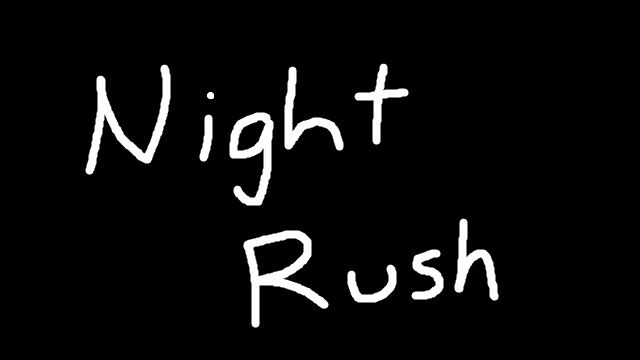 Night
Rush